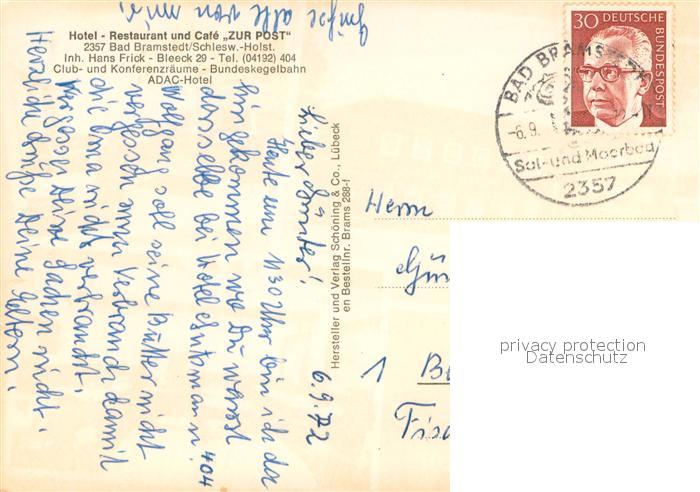 Grüße alle von mir!
Hotel - Restaurant und Café „ZUR POST"
2357 Bad Bramstedt/Schlesw.-Holst.
Inh. Hans Frick - Bleeck 29 - Tel. (04192) 404
Club- und Konferenzräume - Bundeskegelbahn
ADAC-Hotel
6.9.72
Lieber Günter!
Heute um 11 30 Uhr bin ich da
hingekommen wo Du warst
dasselbe bei Hotel
404
Wolfgang soll seine Butter nicht
vergessen zum Verbrauch damit
die Oma nicht verbraucht.
Vergesse Deine Sachen nicht.
Herzliche Grüße Deine Eltern.
Hersteller und Verlag Schöning & Co., Lübeck
en Bestellnr. Brams 288-f
30 DEUTSCHE BUNDESPOST
BAD BRAMSTEDT
-6.9.
Sol- und Moorbad
2357
Herrn
Gün
1 B
Fis
privacy protection
Datenschutz